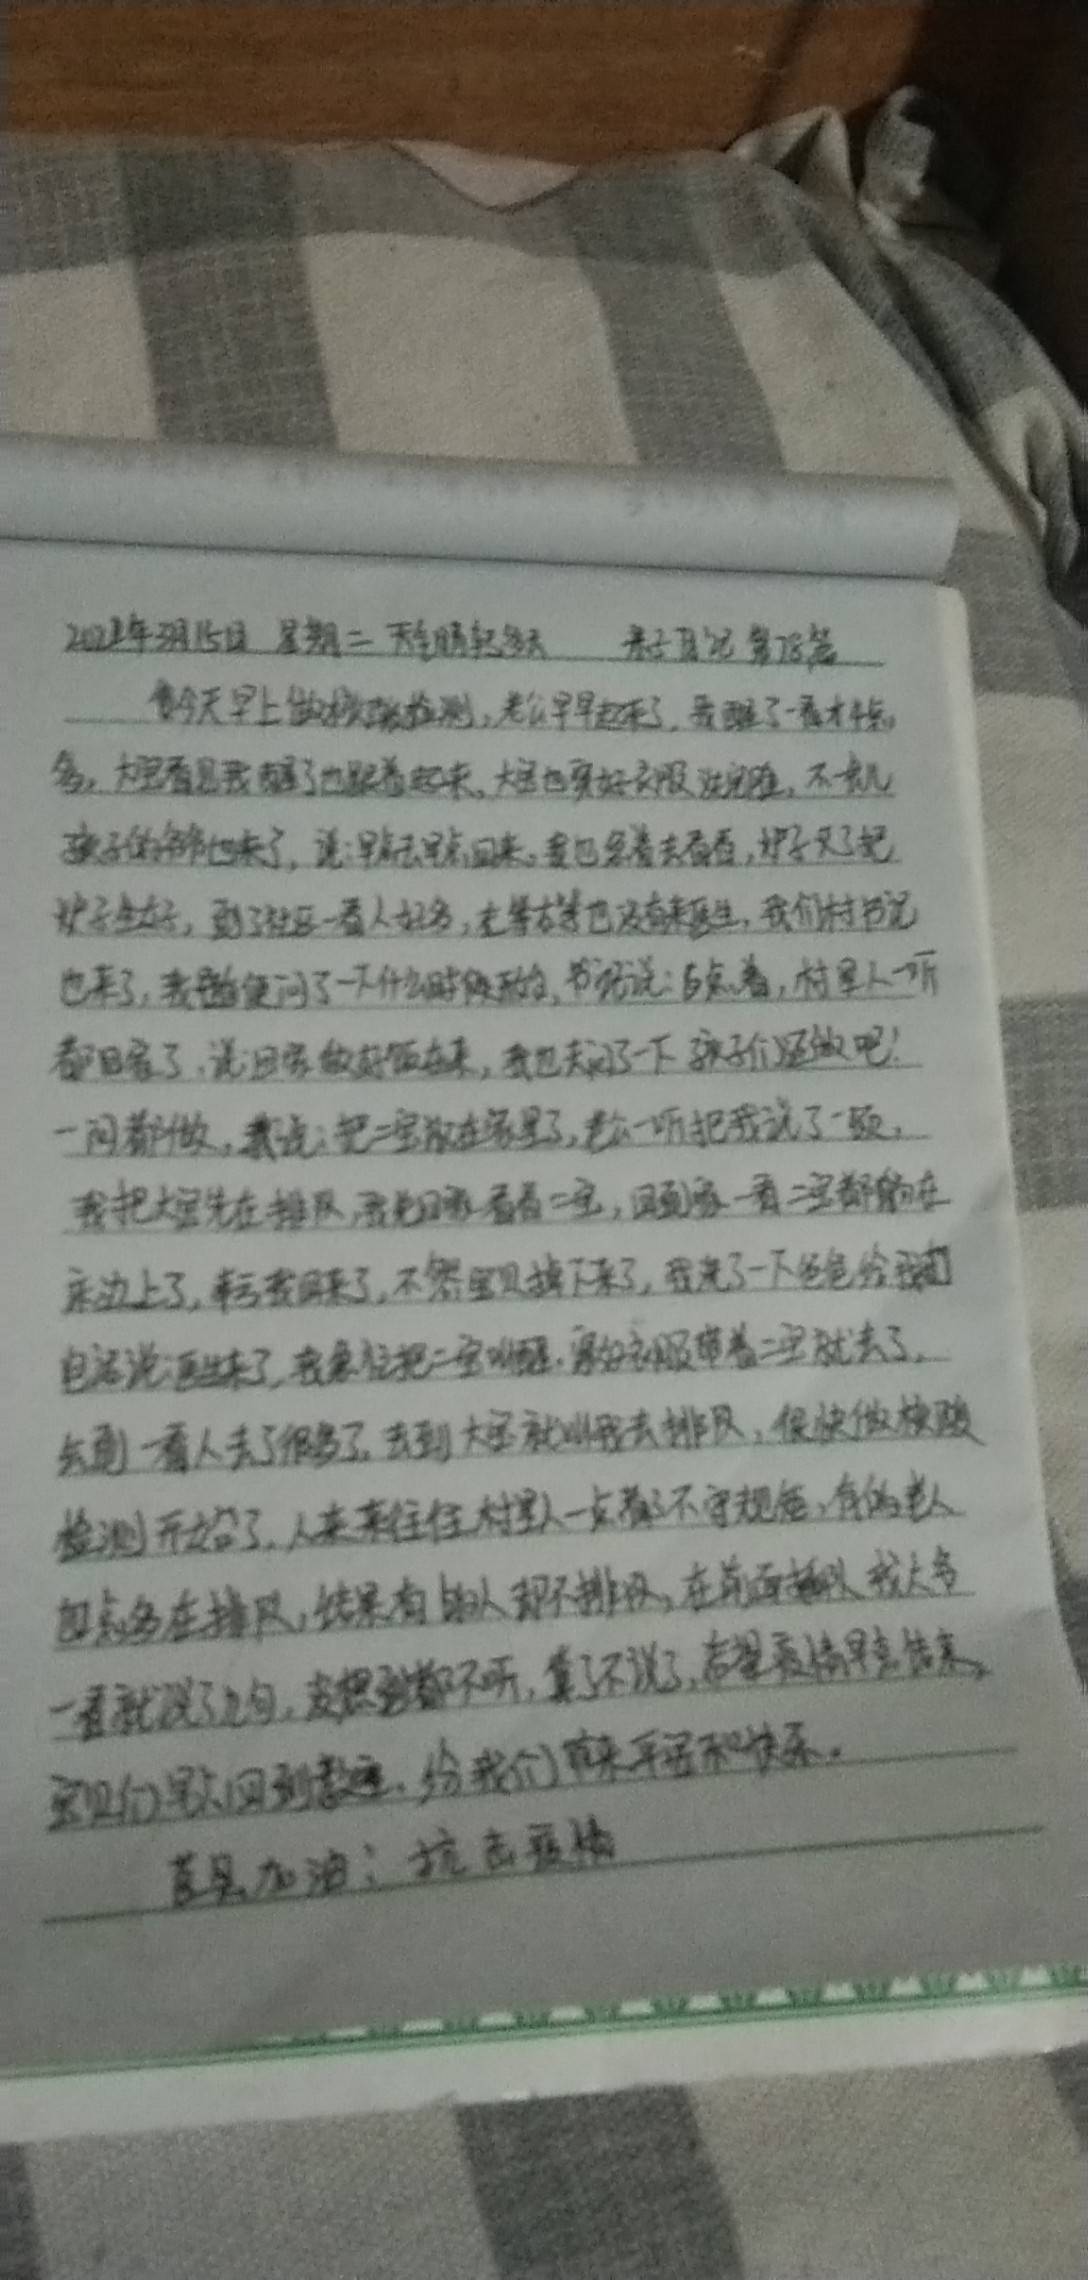 2022年3月15日 星期二 天气晴转多云 亲子日记 第78篇
今天早上做核酸检测,老公早早起来了,我醒了一看才4点
多,大宝看见我醒了也跟着起来,大宝也穿好衣服洗完脸,不一会儿
孩子的爷爷也来了,说:早点去早点回来,我也急着去看看,炉子灭了把
炉子生好,到了社区一看人好多,左等右等也没有来医生,我们村书记
也来了,我顺便问了一下什么时候开始,书记说:8点着,村里人一听
都回家了,说回家做好饭在来,我也去问了一下孩子们还做吧!
一问都做,我说:把二宝放在家里了,老公一听把我说了一顿,
我把大宝先在排队,我先回家看看二宝,回到家一看二宝都躺在
床边上了,幸亏我回来了,不然宝贝掉下来了,我洗了一下爸爸给我打
电话说:医生来了,我急忙把二宝叫醒,穿好衣服带着二宝就去了,
去到一看人去了很多了,去到大宝就叫我去排队,很快做核酸
检测开始了,人来来往往村里人一点都不守规矩,有的老人
四点多在排队,结果有的人却不排队,在前面插队 我大爷
一看就说了几句,没想到都不听,算了不说了,希望疫情早点结束,
宝贝们早点回到教室,给我们带来平安和快乐。
莒县加油:抗击疫情